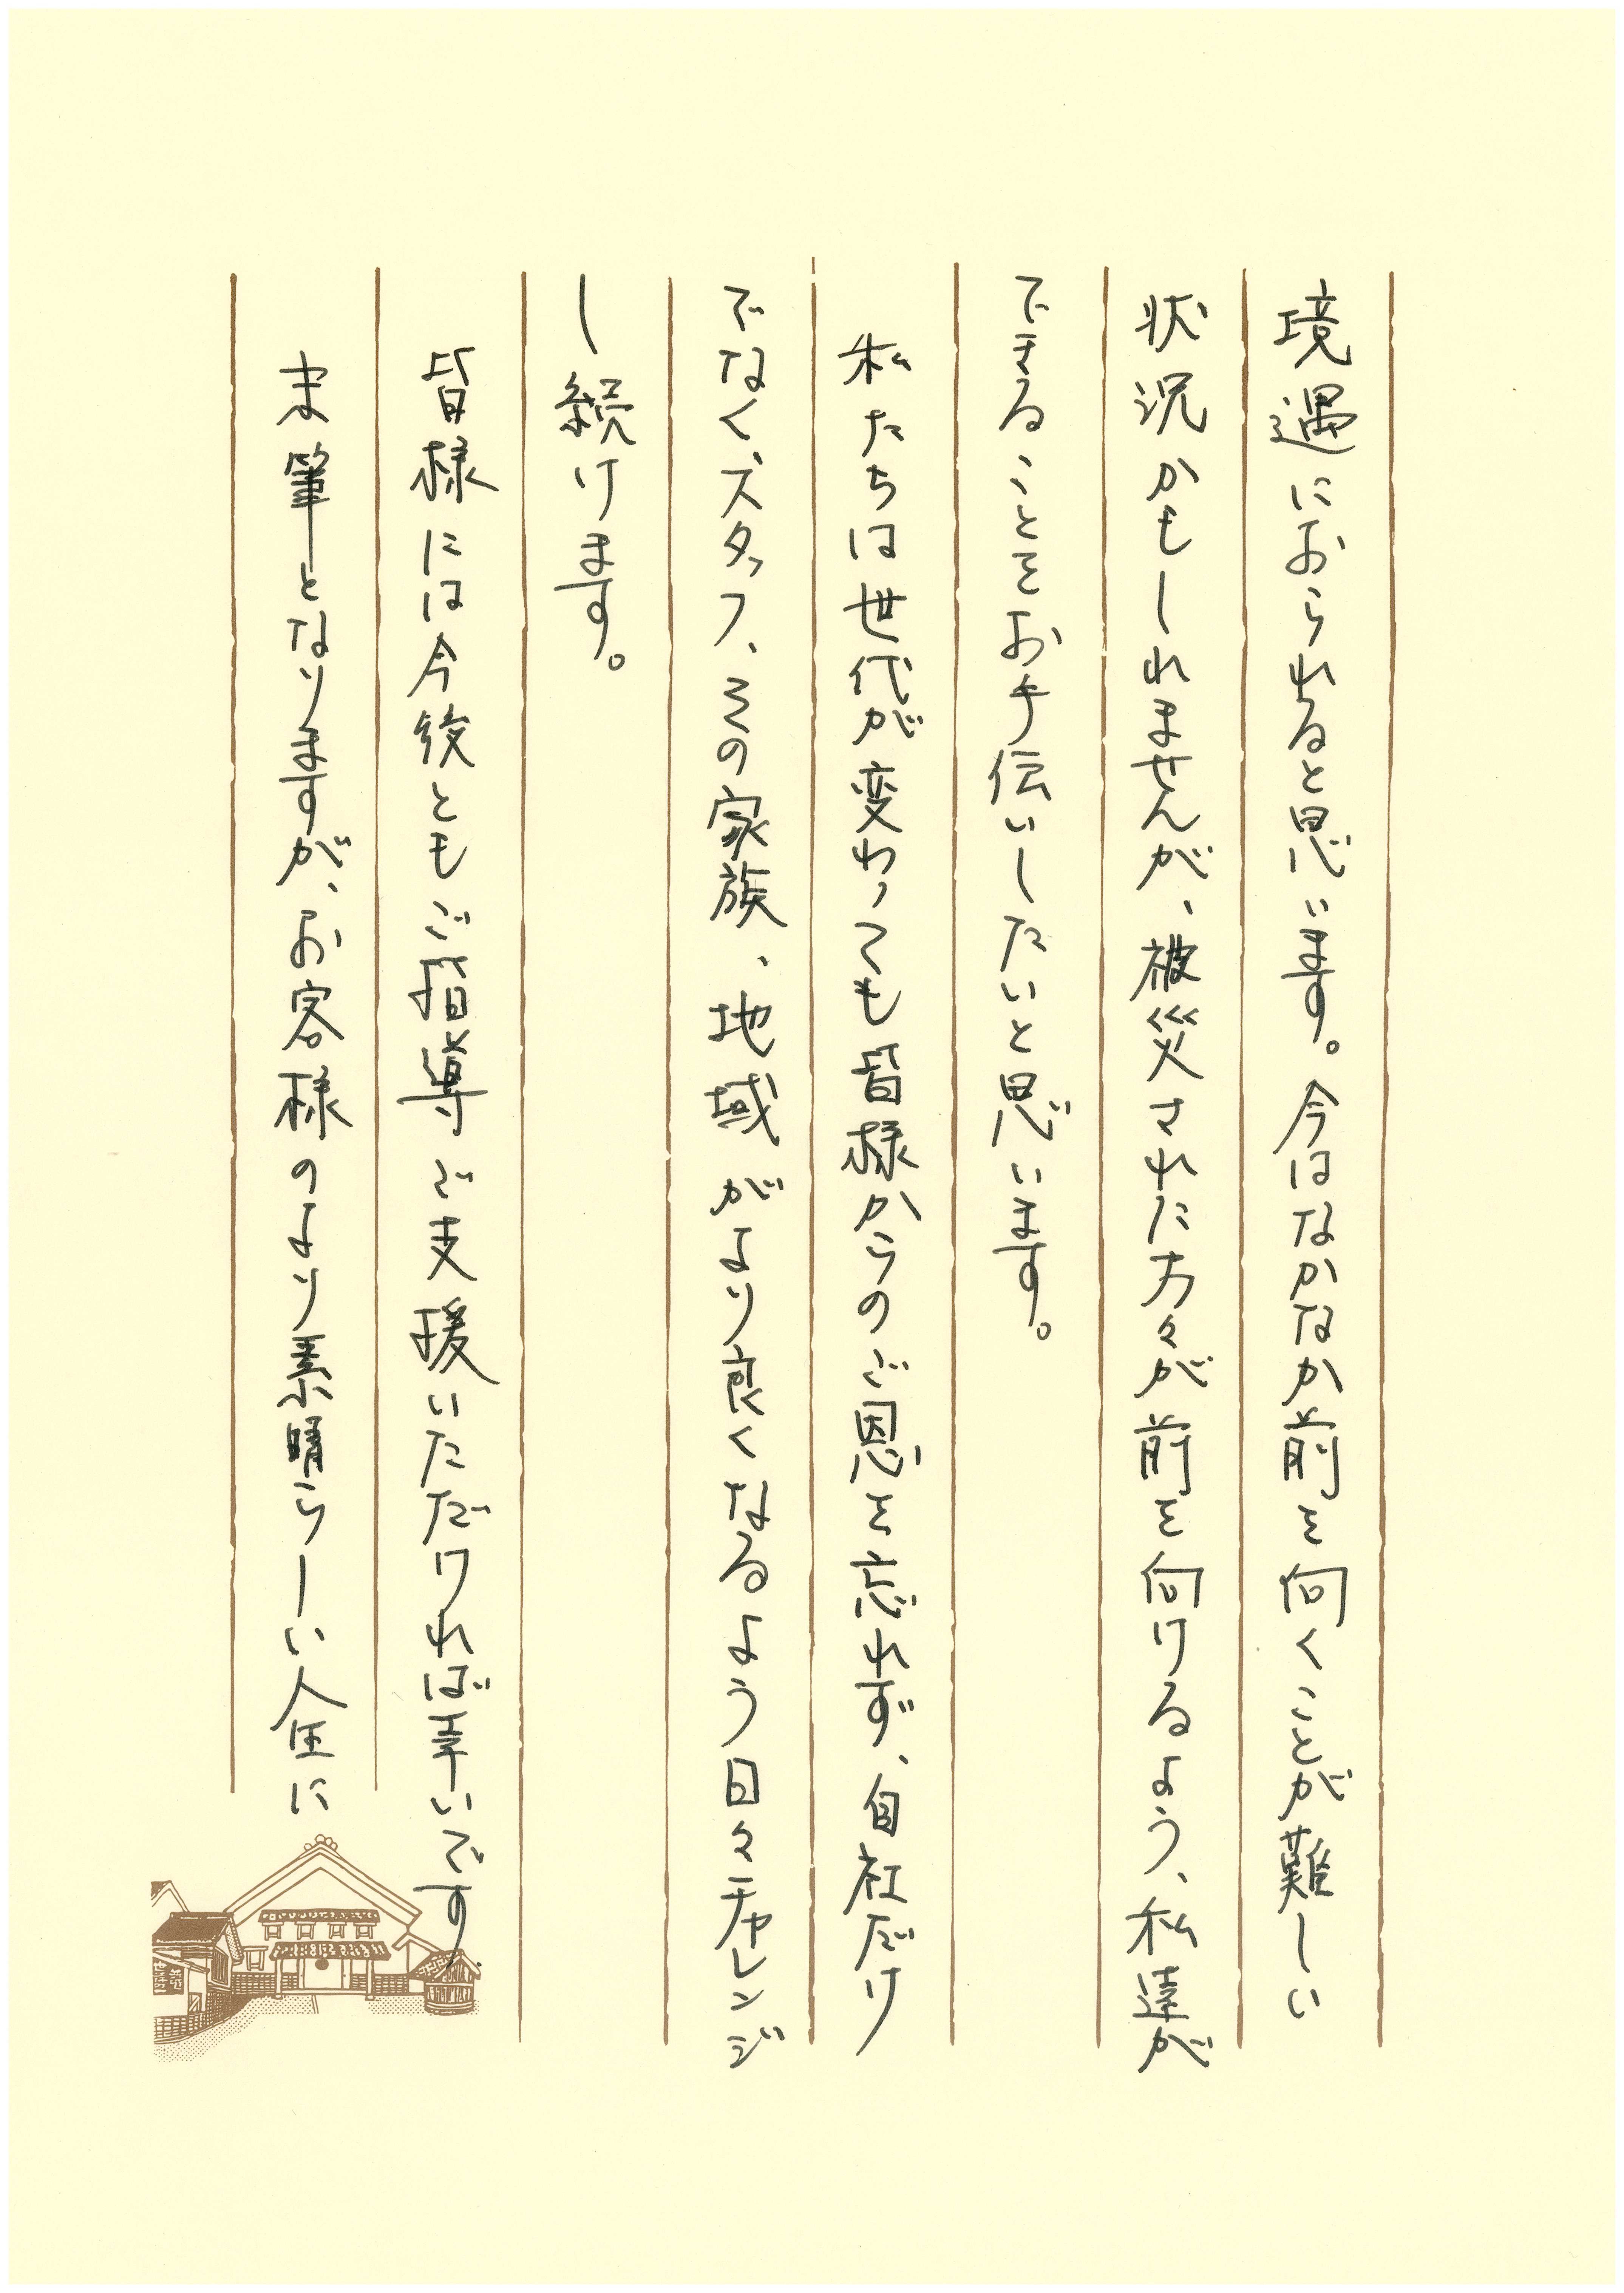 境遇におられると思います。今はなかなか前を向くことが難しい
状況かもしれませんが、被災された方々が前を向けるよう、私達が
できることをお手伝いしたいと思います。
私たちは世代が変わっても皆様からのご恩を忘れず、自社だけ
でなく、スタッフ、その家族、地域がより良くなるよう日々チャレンジ
し続けます。
皆様には今後ともご指導ご支援いただければ幸いです。
末筆となりますが、お客様のより素晴らしい人生に